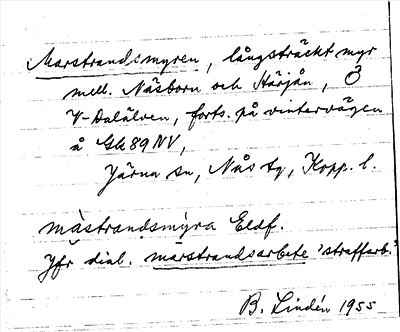 Marstrandsmyren, långsträckt myr
mell. Näsborn och Härjån, Ö
V-Dalälven, forts. på vintervägen
å Gk 89 NV,
Järna sn, Nås tg, Kopp. l.
màstrandsmýra Eldf.
Jfr dial. marstrandsarbete 'straffarb.'
B. Lindén 1955